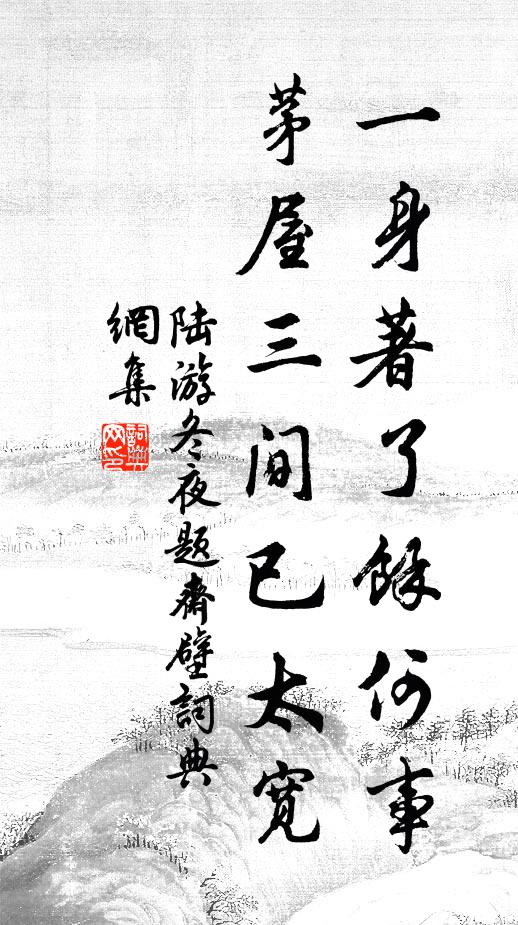 一身著了餘何事
茅屋三間已太寬
陆游冬夜題齋壁詞典
網集